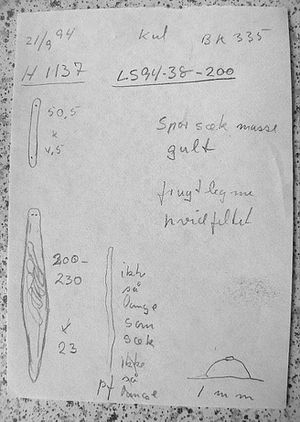 21/9 94 Kul BK 335
H 1137 LS94-38-200
50,5
x
4,5
Spor sæk masse
gult
frugtlegme
hvidfiltet
200-
230
x
23
ikke
så
lange
som
sæk
ikke
så
lange
1 mm